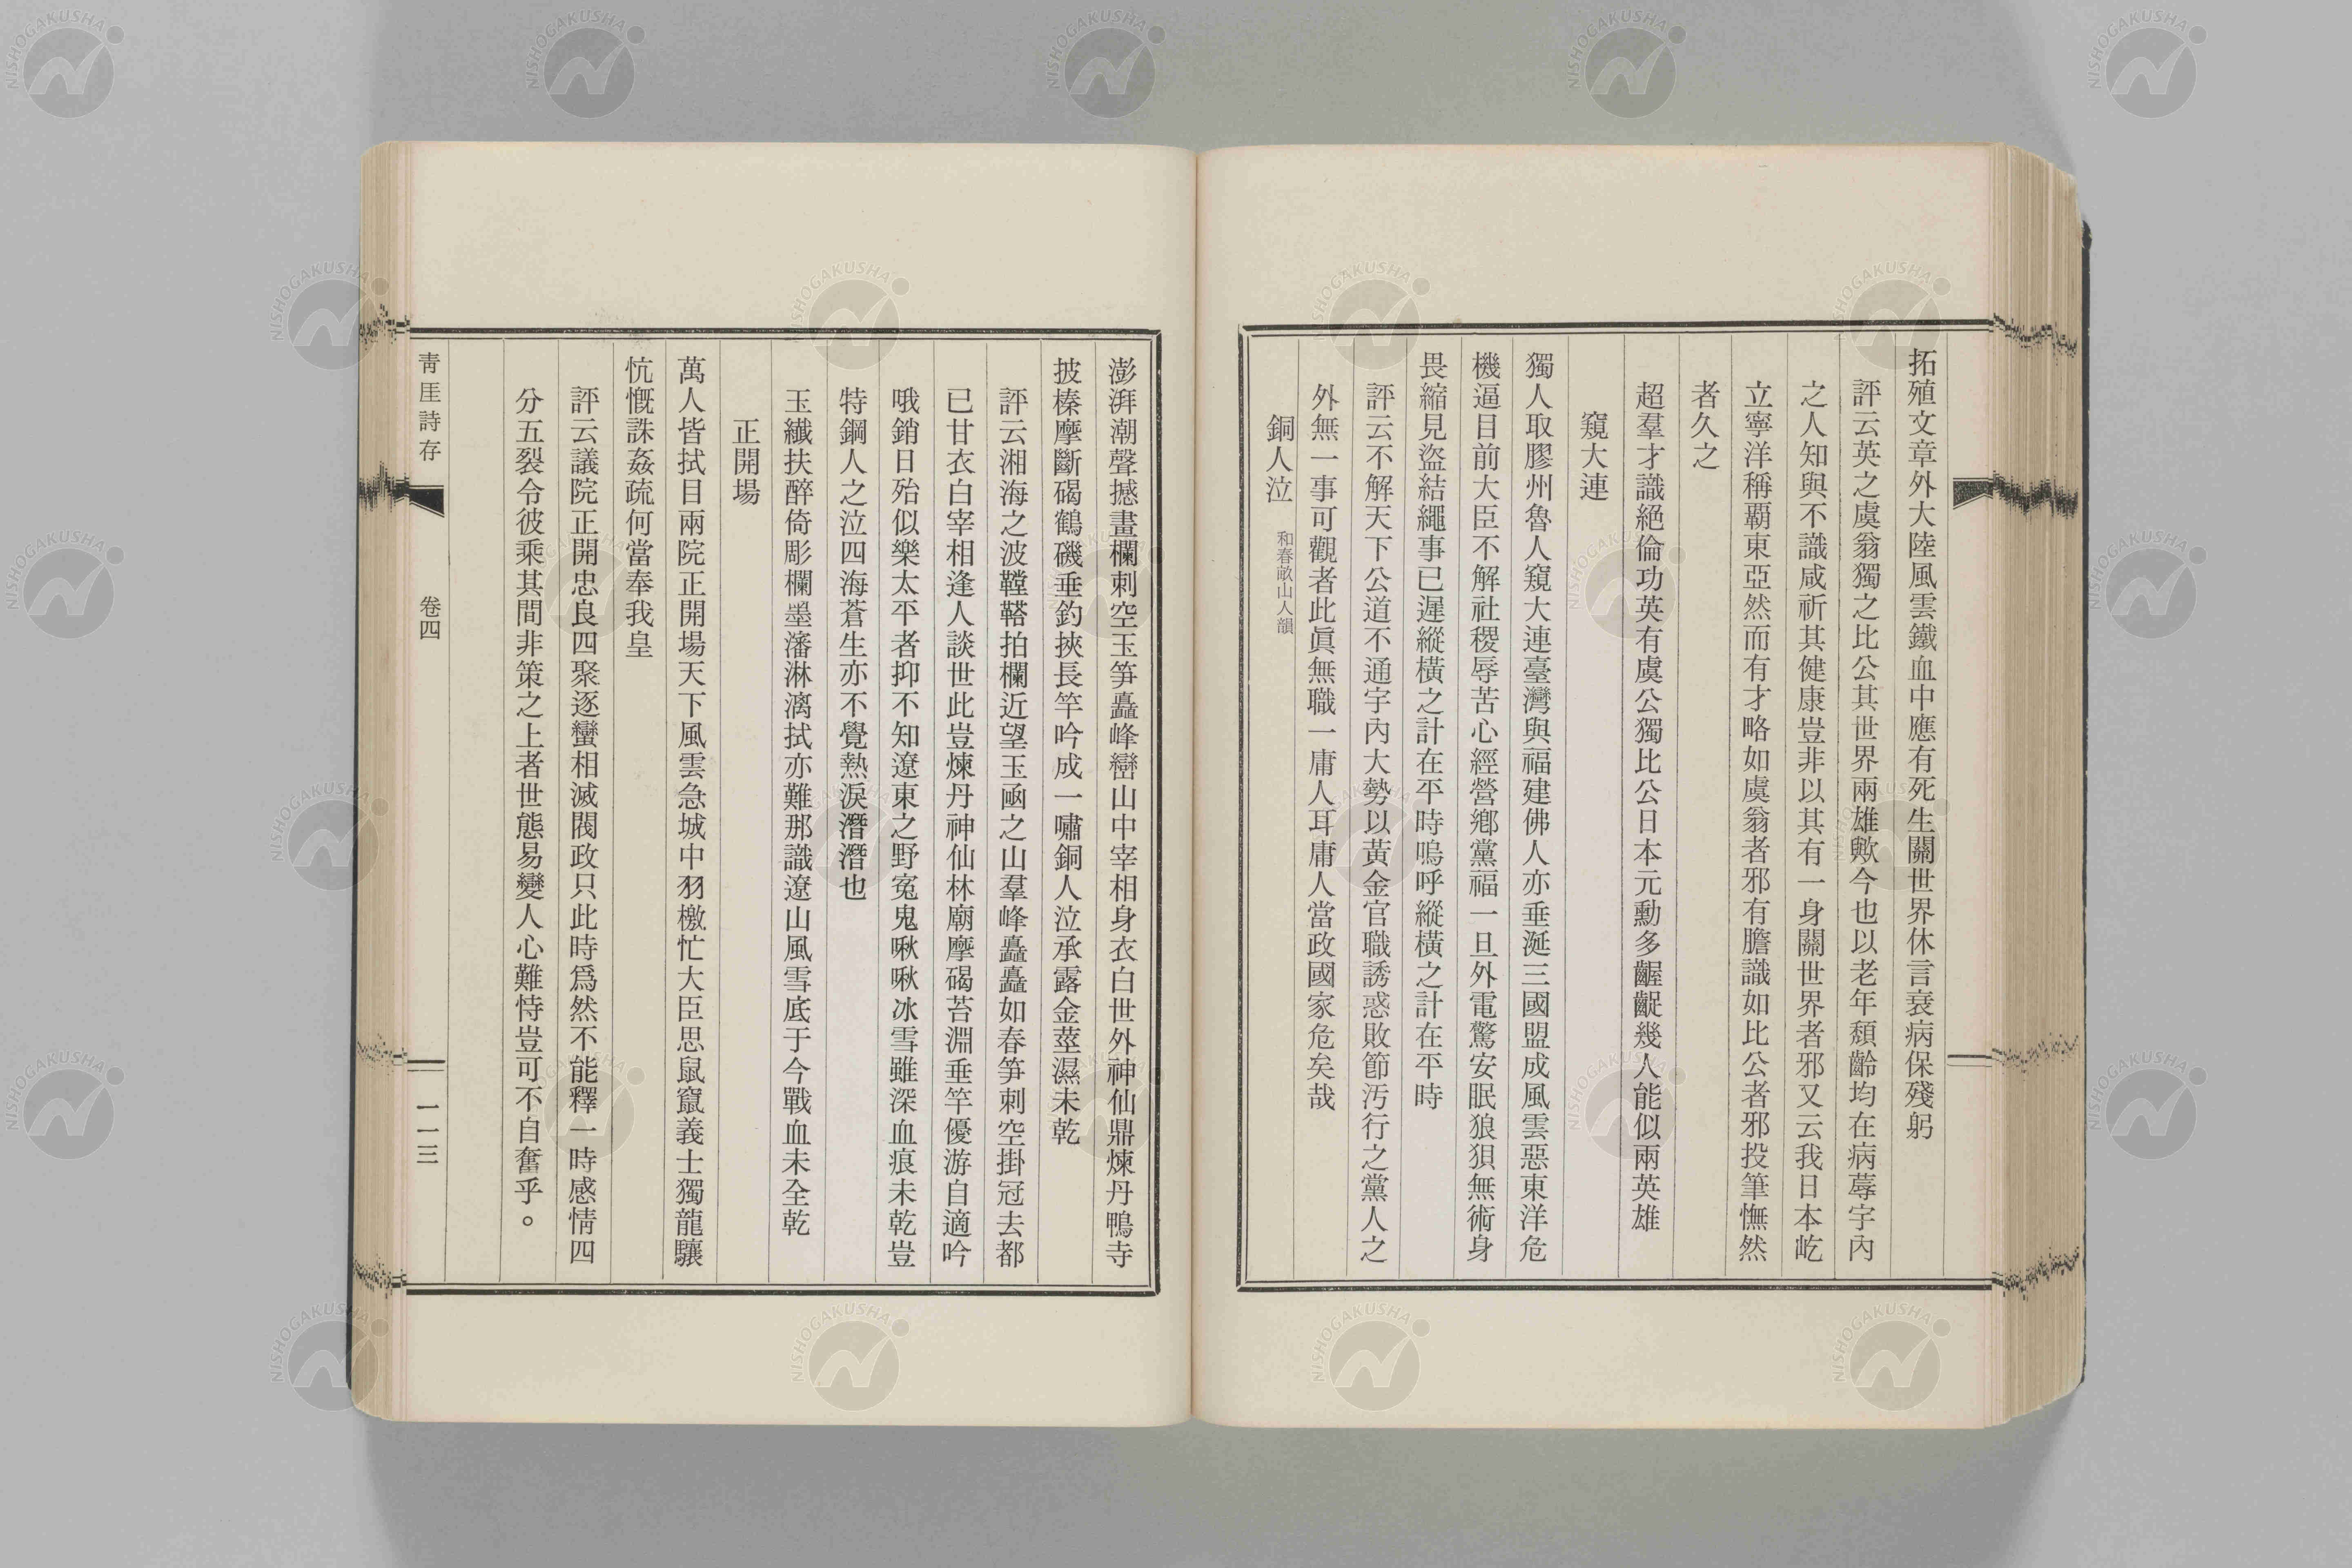 拓殖文章外大陸風雲鐵血中應有死生關世界休言衰病保殘躬
評云英之虞翁獨之比公其世界兩雄歟今也以老年頽齡均在病蓐宇內
之人知與不識咸祈其健康豈非以其有一身關世界者邪又云我日本屹
立寧洋稱覇東亞然而有才略如虞翁者邪有膽識如比公者邪投筆憮然
者久之
超羣才識絕倫功英有虞公獨比公日本元勳多齷齪幾人能似兩英雄
窺大連
獨人取膠州魯人窺大連臺灣與福建佛人亦垂涎三國盟成風雲惡東洋危
機逼目前大臣不解社稷辱苦心經營鄕黨福一旦外電驚安眠狼狽無術身
畏縮見盜結繩事已遲縱橫之計在平時嗚呼縱橫之計在平時
評云不解天下公道不通宇內大勢以黃金官職誘惑敗節汚行之黨人之
外無一事可觀者此眞無職一庸人耳庸人當政國家危矣哉
銅人泣 和春畝山人韻
澎湃潮聲撼畫欄刺空玉筍矗峰巒山中宰相身衣白世外神仙鼎煉丹鴨寺
披榛摩斷碣鶴磯垂釣挾長竿吟成一嘯銅人泣承露金莖濕未乾
評云湘海之波鞺鞳拍欄近望玉凾之山羣峰矗矗如春笋刺空掛冠去都
已甘衣白宰相逢人談世此豈煉丹神仙林廟摩碣苔淵垂竿優游自適吟
哦銷日殆似樂太平者抑不知遼東之野寃鬼啾啾冰雪雖深血痕未乾豈
特鋼人之泣四海蒼生亦不覺熱淚潛潛也
玉纖扶醉倚彫欄墨瀋淋漓拭亦難那識遼山風雪底于今戰血未全乾
正開場
萬人皆拭目兩院正開場天下風雲急城中羽檄忙大臣思鼠竄義士獨龍驤
忼慨誅姦疏何當奉我皇
評云議院正開忠良四聚逐蠻相滅閥政只此時爲然不能釋一時感情四
分五裂令彼乘其間非策之上者世態易變人心難恃豈可不自奮乎。
靑厓詩存 卷四 一一三
NISHOGAKUSHA